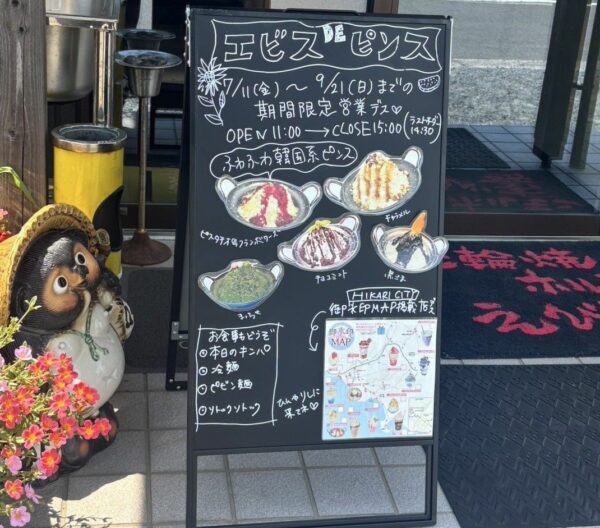 エビス DE ピンス
7/11(金)〜9/21(日)までの
期間限定営業デス♡
OPEN 11:00 → CLOSE 15:00 (ラストオーダー 14:30)
ふわふわ韓国系ピンス
ピスタチオ&フランボワーズ
キャラメル
チョコミント
黒ごま
まっちゃ
HIKARI CITY
御氷印MAP掲載店デス
お食事もどうぞ
本日のキンパ
冷麺
ビビン麺
ソトックソトック
ひんやりしに
来てネ♡
御氷印
MAP